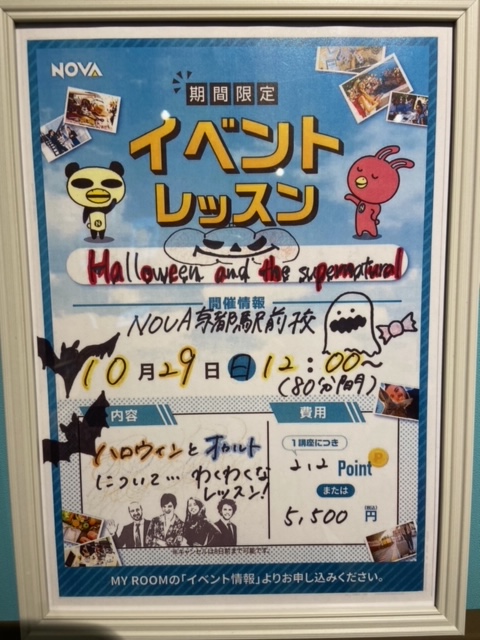 NOVA
期間限定
イベント
レッスン
Halloween and the supernatural
開催情報
NOVA京都駅前校
10月29日 日 12:00~
(80分間)
内容
ハロウィンとオカルト
について… わくわくな
レッスン!
費用
1講座につき
2.2 Point
または
5,500円
(税込)
※キャンセルは8日前まで可能です。
MY ROOMの「イベント情報」よりお申し込みください。